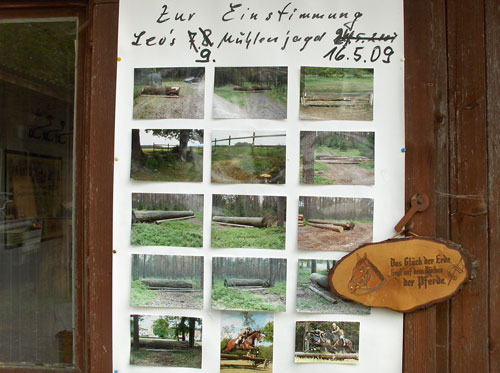 Zur Einstimmung
Leo's 9. Mühlenjagd 16.5.09
Das Glück der Erde
liegt auf dem Rücken
der Pferde.